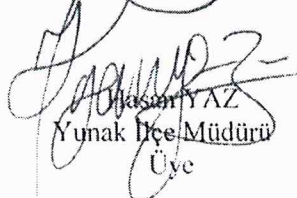 Hasan YAZ
Yunak İlçe Müdürü
Üye